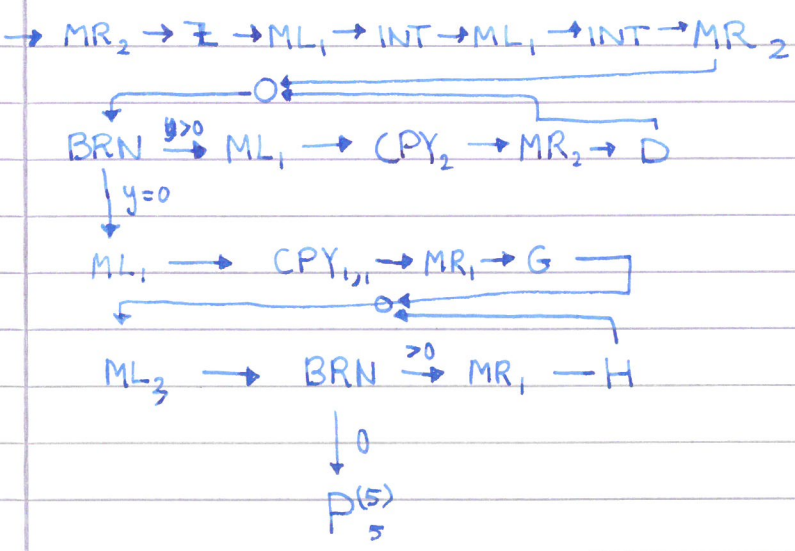 → MR₂ → Z → ML₁ → INT → ML₁ → INT → MR₂
BRN y>0 → ML₁ → CPY₂ → MR₂ → D
↓ y=0
ML₁ → CPY₁,₁ → MR₁ → G
ML₃ → BRN >0 → MR₁ — H
↓ 0
P₅⁽⁵⁾